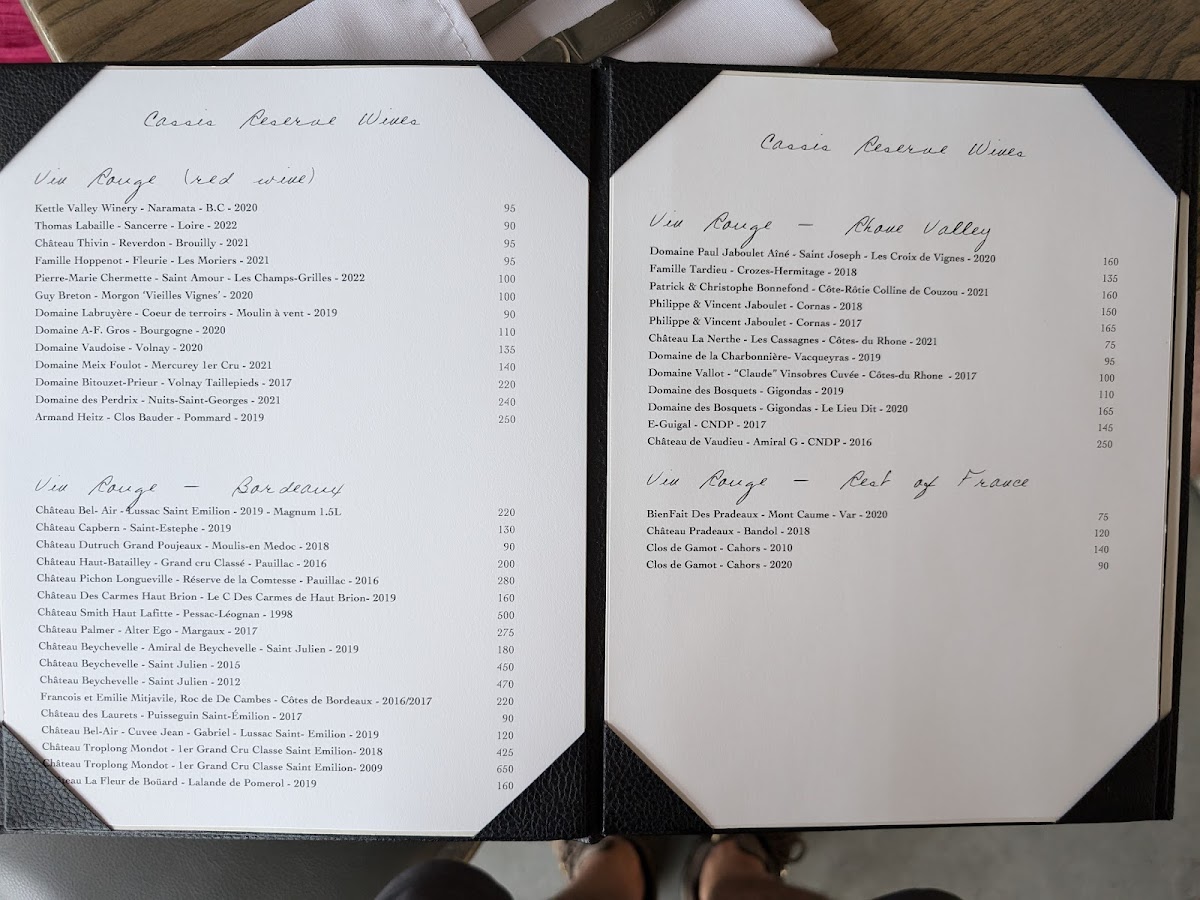 Cassis Reserve Wines
Vin Rouge (red wine)
Kettle Valley Winery - Naramata - B.C - 2020 95
Thomas Labaille - Sancerre - Loire - 2022 90
Château Thivin - Reverdon - Brouilly - 2021 95
Famille Hoppenot - Fleurie - Les Moriers - 2021 95
Pierre-Marie Chermette - Saint Amour - Les Champs-Grilles - 2022 100
Guy Breton - Morgon 'Vieilles Vignes' - 2020 100
Domaine Labruyère - Coeur de terroirs - Moulin à vent - 2019 90
Domaine A-F. Gros - Bourgogne - 2020 110
Domaine Vaudoise - Volnay - 2020 135
Domaine Meix Foulot - Mercurey 1er Cru - 2021 140
Domaine Bitouzet-Prieur - Volnay Taillepieds - 2017 220
Domaine des Perdrix - Nuits-Saint-Georges - 2021 240
Armand Heitz - Clos Bauder - Pommard - 2019 250
Vin Rouge - Bordeaux
Château Bel- Air - Lussac Saint Emilion - 2019 - Magnum 1.5L 220
Château Capbern - Saint-Estephe - 2019 130
Château Dutruch Grand Poujeaux - Moulis-en Medoc - 2018 90
Château Haut-Batailley - Grand cru Classé - Pauillac - 2016 200
Château Pichon Longueville - Réserve de la Comtesse - Pauillac - 2016 280
Château Des Carmes Haut Brion - Le C Des Carmes de Haut Brion- 2019 160
Château Smith Haut Lafitte - Pessac-Léognan - 1998 500
Château Palmer - Alter Ego - Margaux - 2017 275
Château Beychevelle - Amiral de Beychevelle - Saint Julien - 2019 180
Château Beychevelle - Saint Julien - 2015 450
Château Beychevelle - Saint Julien - 2012 470
Francois et Emilie Mitjavile, Roc de De Cambes - Côtes de Bordeaux - 2016/2017 220
Château des Laurets - Puisseguin Saint-Émilion - 2017 90
Château Bel-Air - Cuvee Jean - Gabriel - Lussac Saint- Emilion - 2019 120
Château Troplong Mondot - 1er Grand Cru Classe Saint Emilion- 2018 425
Château Troplong Mondot - 1er Grand Cru Classe Saint Emilion- 2009 650
La Fleur de Boüard - Lalande de Pomerol - 2019 160
Cassis Reserve Wines
Vin Rouge - Rhone Valley
Domaine Paul Jaboulet Aîné - Saint Joseph - Les Croix de Vignes - 2020 160
Famille Tardieu - Crozes-Hermitage - 2018 135
Patrick & Christophe Bonnefond - Côte-Rôtie Colline de Couzou - 2021 160
Philippe & Vincent Jaboulet - Cornas - 2018 150
Philippe & Vincent Jaboulet - Cornas - 2017 165
Château La Nerthe - Les Cassagnes - Côtes- du Rhone - 2021 75
Domaine de la Charbonnière- Vacqueyras - 2019 95
Domaine Vallot - "Claude" Vinsobres Cuvée - Côtes-du Rhone - 2017 100
Domaine des Bosquets - Gigondas - 2019 110
Domaine des Bosquets - Gigondas - Le Lieu Dit - 2020 165
E-Guigal - CNDP - 2017 145
Château de Vaudieu - Amiral G - CNDP - 2016 250
Vin Rouge - Rest of France
BienFait Des Pradeaux - Mont Caume - Var - 2020 75
Château Pradeaux - Bandol - 2018 120
Clos de Gamot - Cahors - 2010 140
Clos de Gamot - Cahors - 2020 90